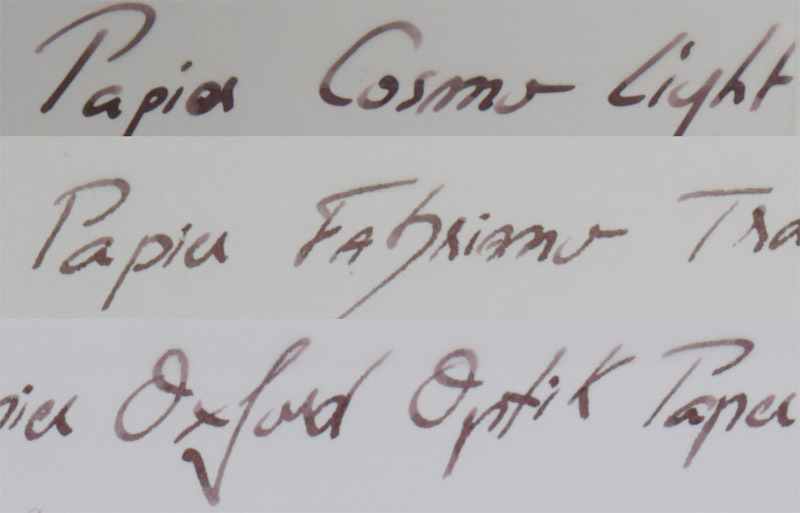 Papier Cosmo Light
Papier Fabriano Tra
pier Oxford Optik Paper